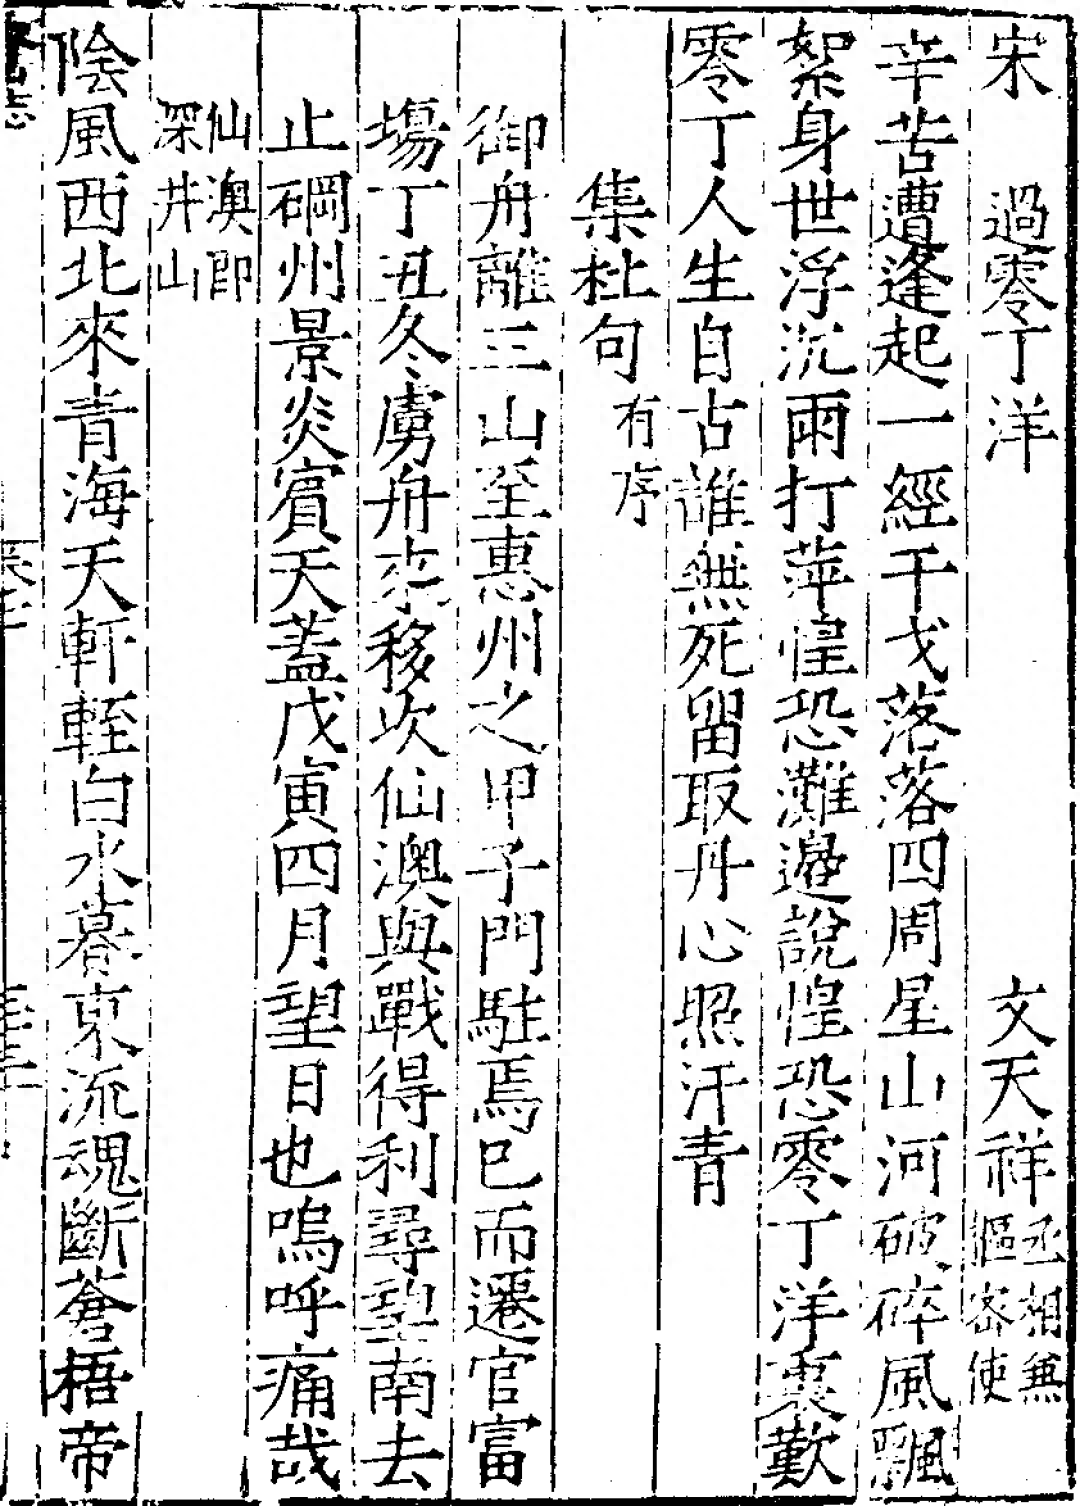 宋　過零丁洋　文天祥丞相兼樞密使
辛苦遭逢起一經干戈落落四周星山河破碎風飄
絮身世浮沉雨打萍惶恐灘邉說惶恐零丁洋裏歎
零丁人生自古誰無死留取丹心照汗青
集杜句有序
御舟離三山至惠州之甲子門駐焉已而遷官富
塲丁丑冬虜舟來移次仙澳與戰得利尋望南去
止碙州景炎賔天蓋戊寅四月望日也嗚呼痛哉
仙澳即
深井山
陰風西北來青海天軒輊白水暮東流魂斷蒼梧帝